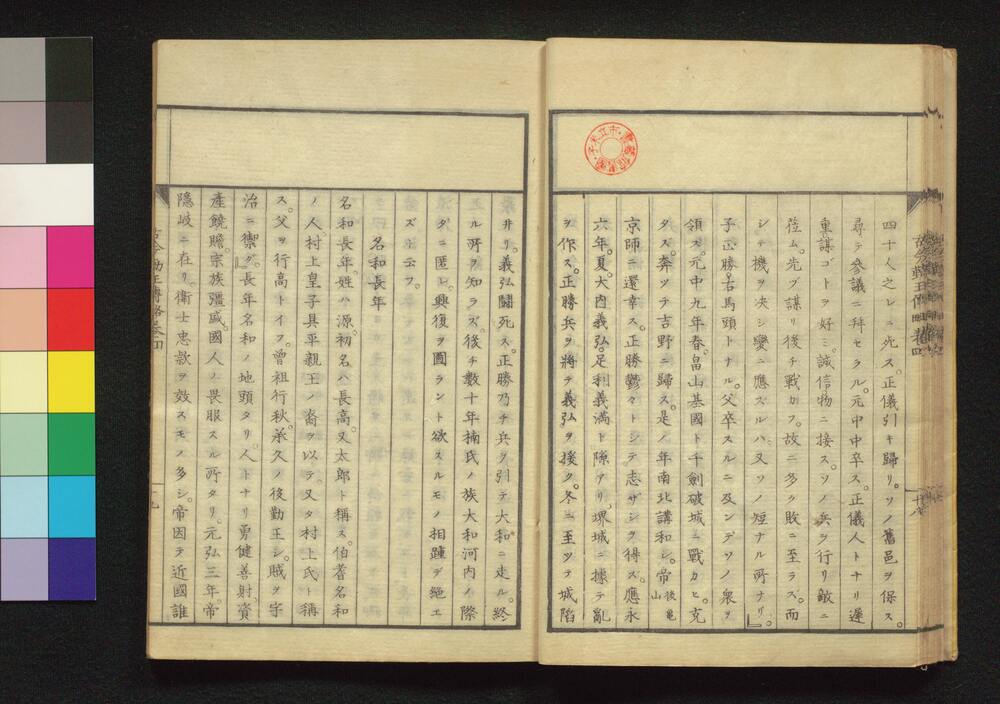 四十人之レニ先ス。正儀引キ歸リ。ソノ舊邑ヲ保ス。
尋テ參議ニ拜セラル。元中中卒ス。正儀人トナリ遲
重謀ゴトヲ好ミ。誠信物ニ接ス。ソノ兵ヲ行リ敵ニ
莅ム。先ヅ謀リ後チ戰カフ。故ニ多ク敗ニ至ラス。而
シテ機ヲ决シ變ニ應ズルハ。又ソノ短ナル所ナリ。』
子正勝。右馬頭トナル。父卒スルニ及ンデソノ衆ヲ
領ス。元中九年春。畠山基國ト千劍破城ニ戰カヒ。克
タズ。奔ツテ吉野ニ歸ス。是ノ年南北講和シ。帝後龜山
京師ニ還幸ス。正勝鬱々トシテ志ザシヲ得ズ。應永
六年。夏。大内義弘。足利義滿ト隙アリ。堺城ニ據テ亂
ヲ作ス。正勝兵ヲ將テ義弘ヲ援ク。冬ニ至ツテ城陷
井リ。義弘鬭死ス。正勝乃チ兵ヲ引テ大和ニ走ル。終
ル所ヲ知ラズ。後チ數十年楠氏ノ族大和河内ノ際
ダニ匿レ。興復ヲ圖ラント欲スルモノ相踵デ絕エ
ズト云フ。
名和長年
名和長年。姓ハ源。初名ハ長高。又太郎ト稱ス。伯耆名和
ノ人。村上皇子具平親王ノ裔ヲ以テ。又タ村上氏ト稱
ス。父ヲ行高トイフ。曾祖行秋。承久ノ役勤王シ。賊ヲ宇
治ニ禦グ。』長年名和ノ地頭タリ。人トナリ勇健善射。資
產饒贍。宗族彊盛。國人ノ畏服スル所タリ。元弘三年。帝
隱岐ニ在リ。衛士忠款ヲ效スモノ多シ。帝因テ近國誰